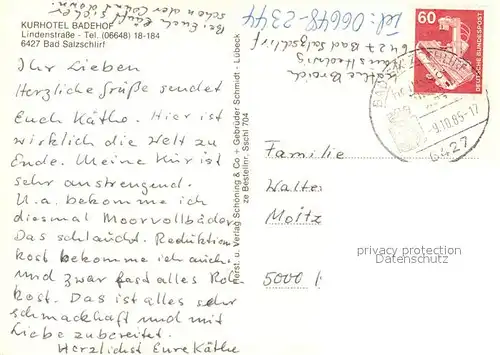 KURHOTEL BADEHOF
Lindenstraße - Tel. (06648) 18-184
6427 Bad Salzschlirf
Bei Euch läuft sicher
schon der Countdown!
Ihr Lieben
Herzliche Grüße sendet
Euch Käthe. Hier ist
wirklich die Welt zu
Ende. Meine Kur ist
sehr anstrengend.
U.a. bekomme ich
diesmal Moorvollbäder.
Das schlaucht. Reduktions
kost bekomme ich auch.
und zwar fast alles Roh-
kost. Das ist alles sehr
schmackhaft und mit
Liebe zubereitet.
Herzlichst Eure Käthe
Herst. u. Verlag Schöning & Co + Gebrüder Schmidt - Lübeck
ze Bestellnr. Sschl 704
Tel: 06648-2344
6427 Bad Salzschlirf
60
DEUTSCHE BUNDESPOST
BAD
-9.10.85-17
6427
Familie
Walter
Moitz
5000
privacy protection
Datenschutz